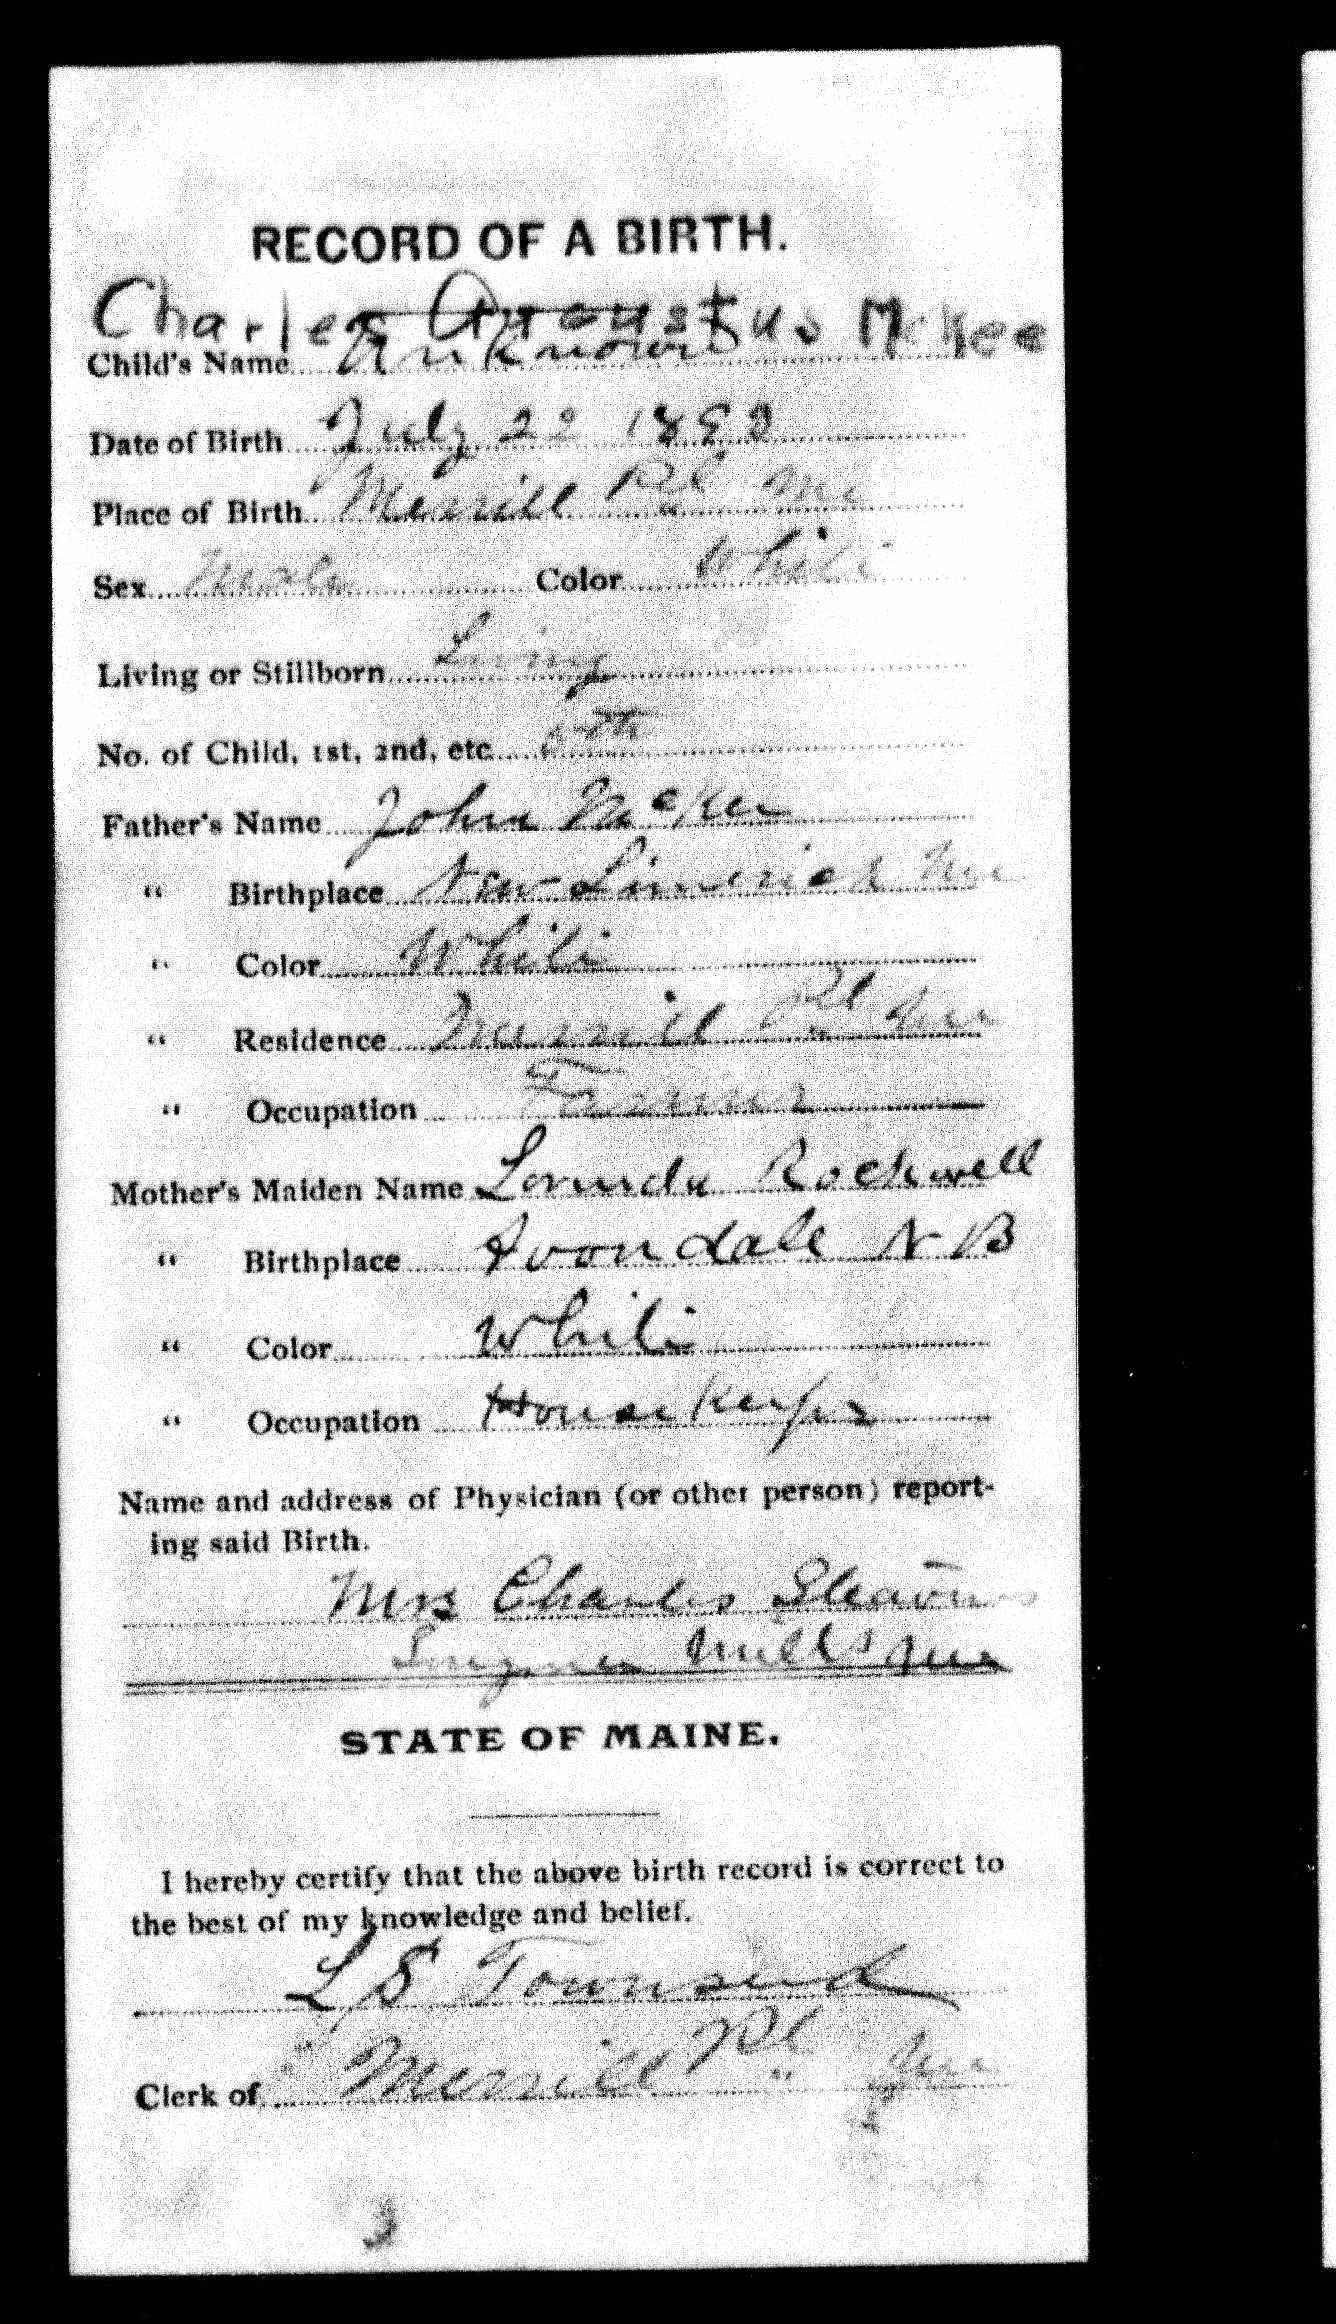 RECORD OF A BIRTH.
Charles Augustus McKee
Child's Name Unknown
Date of Birth July 22 1892
Place of Birth Merrill Pl Me
Sex Male Color White
Living or Stillborn Living
No. of Child, 1st, 2nd, etc.
Father's Name John McKee
" Birthplace New Limerick Me
" Color White
" Residence Merrill Pl Me
" Occupation Farmer
Mother's Maiden Name Lorinda Rockwell
" Birthplace Avondale N B
" Color White
" Occupation House Keeper
Name and address of Physician (or other person) report-
ing said Birth.
Mrs Charles
Mills Me
STATE OF MAINE.
I hereby certify that the above birth record is correct to
the best of my knowledge and belief.
L S Townsend
Clerk of Merrill Pl Me